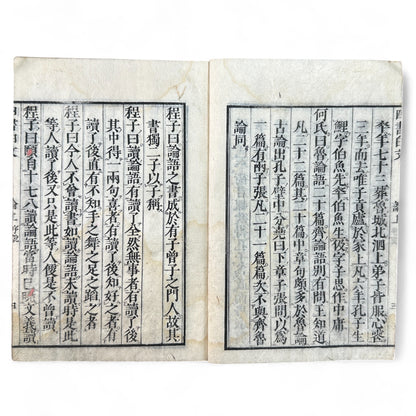 卒年七十三葬魯城北泗上弟子皆服心喪
三年而去惟子貢廬於冢上凡六年孔子生
鯉字伯魚先卒伯魚生伋字子思作中庸
何氏曰魯論語二十篇齊論語別有問王知道
凡二十二篇其二十篇中章句頗多於魯論
古論出孔氏壁中分堯曰下章子張問以為
一篇有兩子張凡二十一篇篇次不與齊魯
論同
程子曰論語之書成於有子曾子之門人故其
書獨二子以子稱
程子曰讀論語有讀了全然無事者有讀了後
其中得一兩句喜者有讀了後知好之者有
讀了後直有不知手之舞之足之蹈之者
程子曰今人不會讀書如讀論語未讀時是此
等人讀了後又只是此等人便是不曾讀
程子曰頤自十七八讀論語當時已曉文義讀